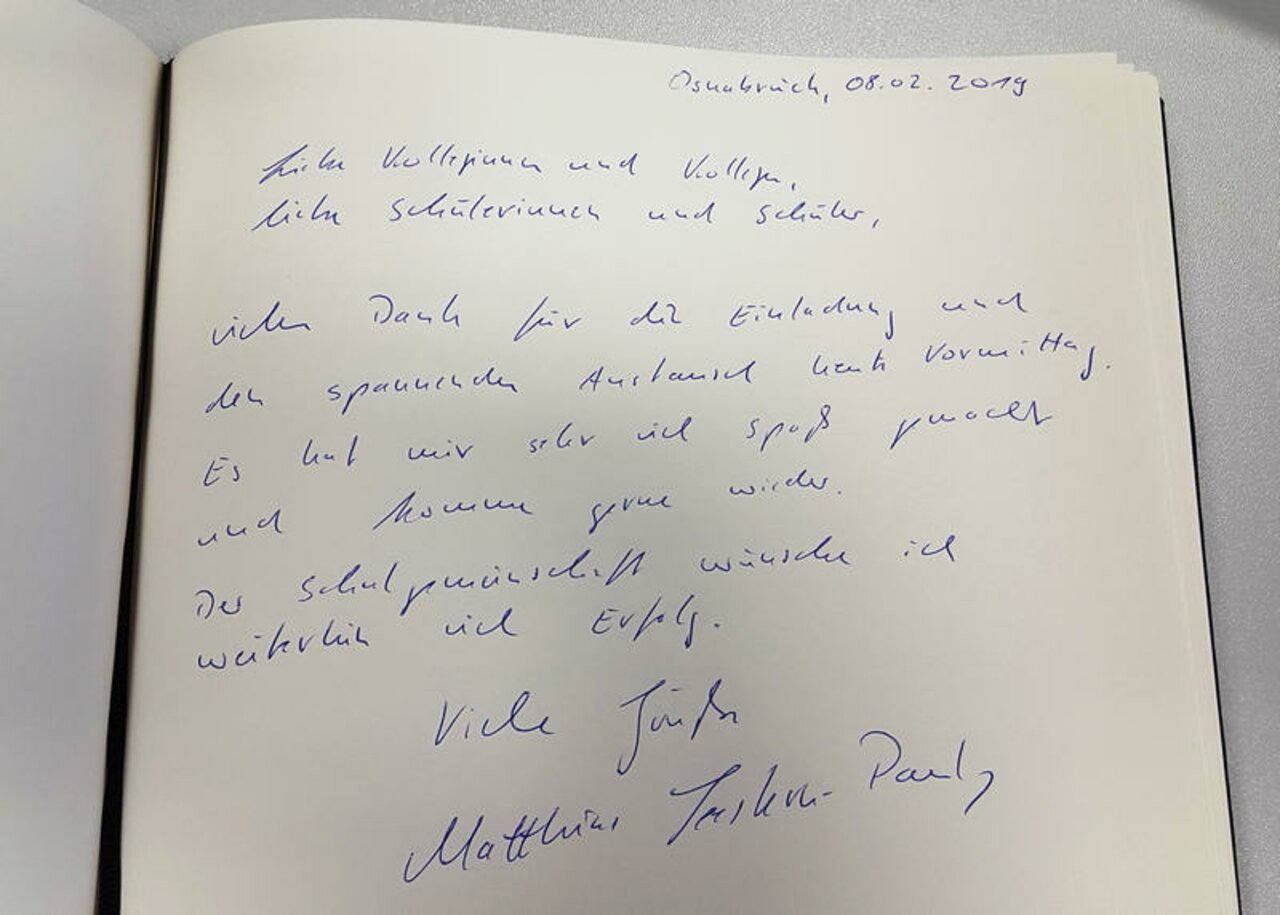 Osnabrück, 08.02.2019
Liebe Kolleginnen und Kollegen,
liebe Schülerinnen und Schüler,
vielen Dank für die Einladung und
den spannenden Austausch heute Vormittag.
Es hat mir sehr viel Spaß gemacht
und komme gerne wieder.
Der Schulgemeinschaft wünsche ich
weiterhin viel Erfolg.
Viele Grüße
Matthias